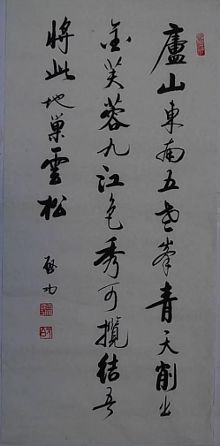 廬山東南五老峯青天削出
金芙蓉九江色秀可攬結吾
將此地巢雲松
啟功